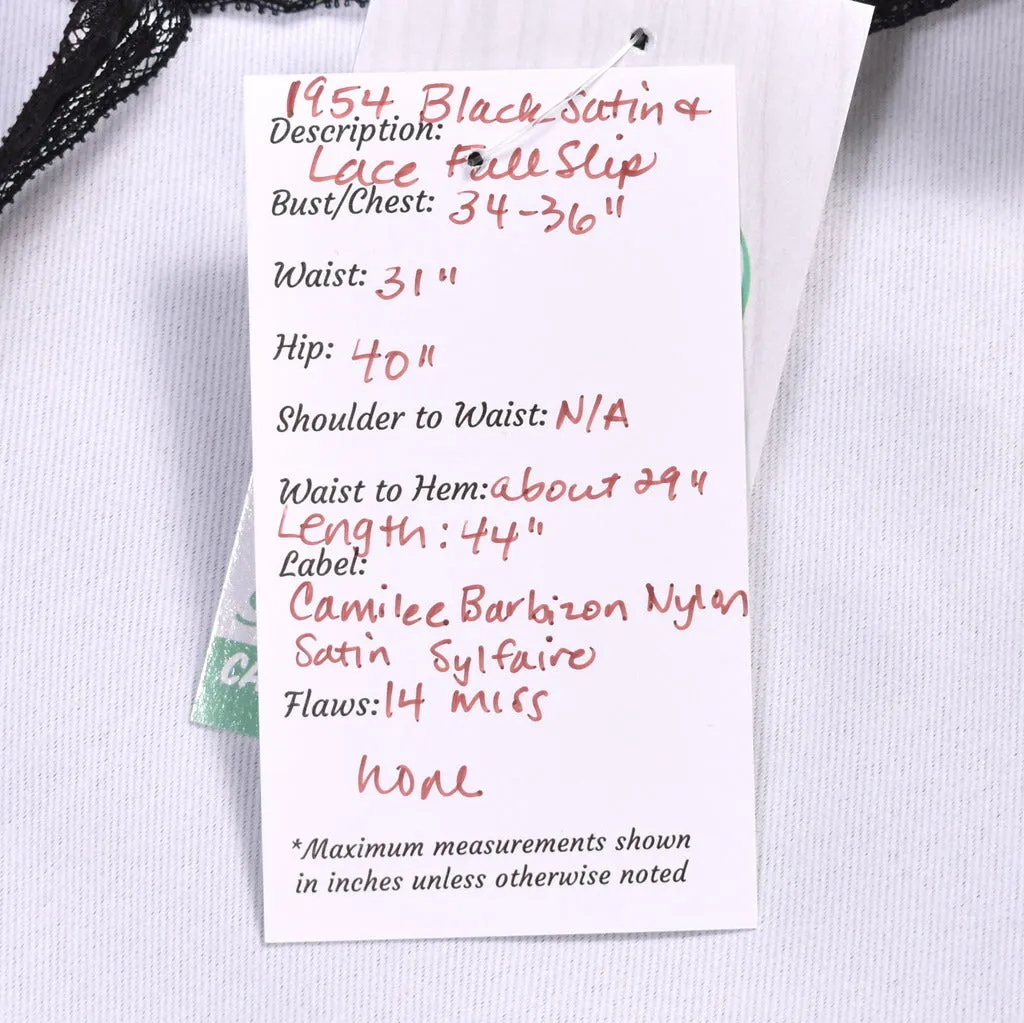 1954 Black Satin &
Description:
Lace Full Slip
Bust/Chest: 34-36"
Waist: 31"
Hip: 40"
Shoulder to Waist: N/A
Waist to Hem: about 29"
Length: 44"
Label:
Camilee Barbizon Nylon
Satin Sylfaire
Flaws: 14 miss
none
*Maximum measurements shown
in inches unless otherwise noted